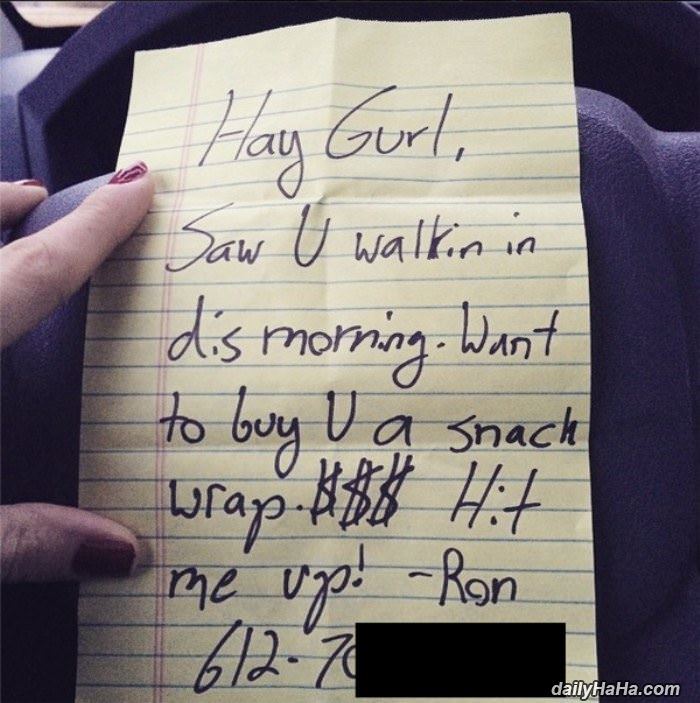 Hay Gurl,
Saw U walkin in
dis morning. Want
to buy U a snack
wrap. $$$ Hit
me up! -Ron
612-70
dailyHaHa.com